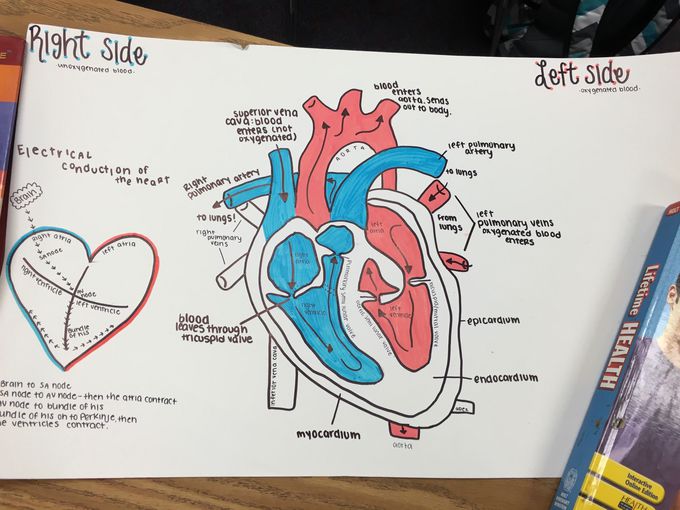 Right Side
-unoxygenated blood-
Left Side
-oxygenated blood-
blood
enters
aorta. Sends
out to body.
superior vena
cava: blood
enters (not
oxygenated)
AORTA
left pulmonary
artery
to lungs
Right
pulmonary artery
to lungs!
right
pulmonary
veins
from
lungs
left
pulmonary veins
oxygenated blood
enters
left
atria
right
atria
right
ventricle
left
ventricle
blood
leaves through
tricuspid valve
epicardium
endocardium
myocardium
inferior vena cava
apex
aorta
Electrical
conduction of
the heart
Brain
Right atria
left atria
SA node
right ventricle
node
left ventricle
bundle
of his
Brain to SA node
SA node to AV node - then the atria contract
AV node to bundle of his
undle of his on to Perkinje, then
e ventricles contract.
Lifetime HEALTH
HOLT
Interactive
Online Edition
HEALTH